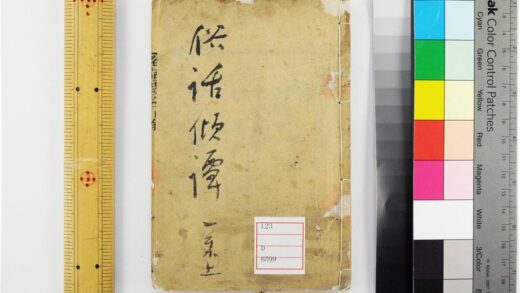 俗話傾譚
一集上
L23
D
6599
Color Control Patches
Cyan
Green
Yellow
Red
Magenta
White
3/Color